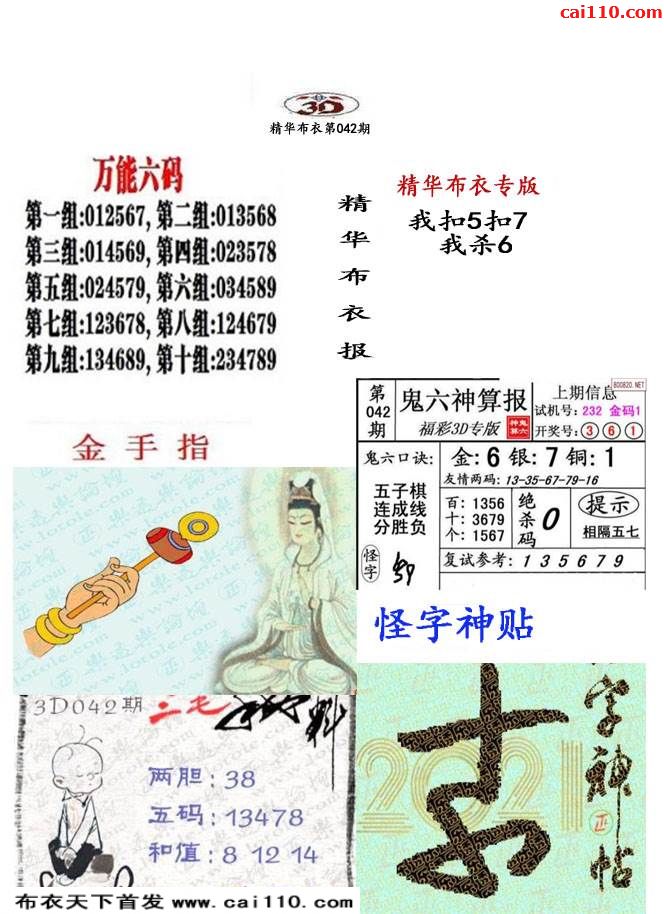 cai110.com
3D
精华布衣第042期
万能六码
第一组:012567, 第二组:013568
第三组:014569, 第四组:023578
第五组:024579, 第六组:034589
第七组:123678, 第八组:124679
第九组:134689, 第十组:234789
精华布衣报
精华布衣专版
我扣5扣7
我杀6
金手指
第042期
鬼六神算报
福彩3D专版
上期信息
800820.NET
试机号: 232 金码1
开奖号: 3 6 1
鬼六口诀:
五子棋
连成线
分胜负
怪字
金: 6 银: 7 铜: 1
友情两码: 13-35-67-79-16
百: 1356
十: 3679
个: 1567
绝杀码
0
提示
相隔五七
复试参考: 1 3 5 6 7 9
怪字神贴
3D042期
两胆: 38
五码: 13478
和值: 8 12 14
2021
字神帖
布衣天下首发 www.cai110.com